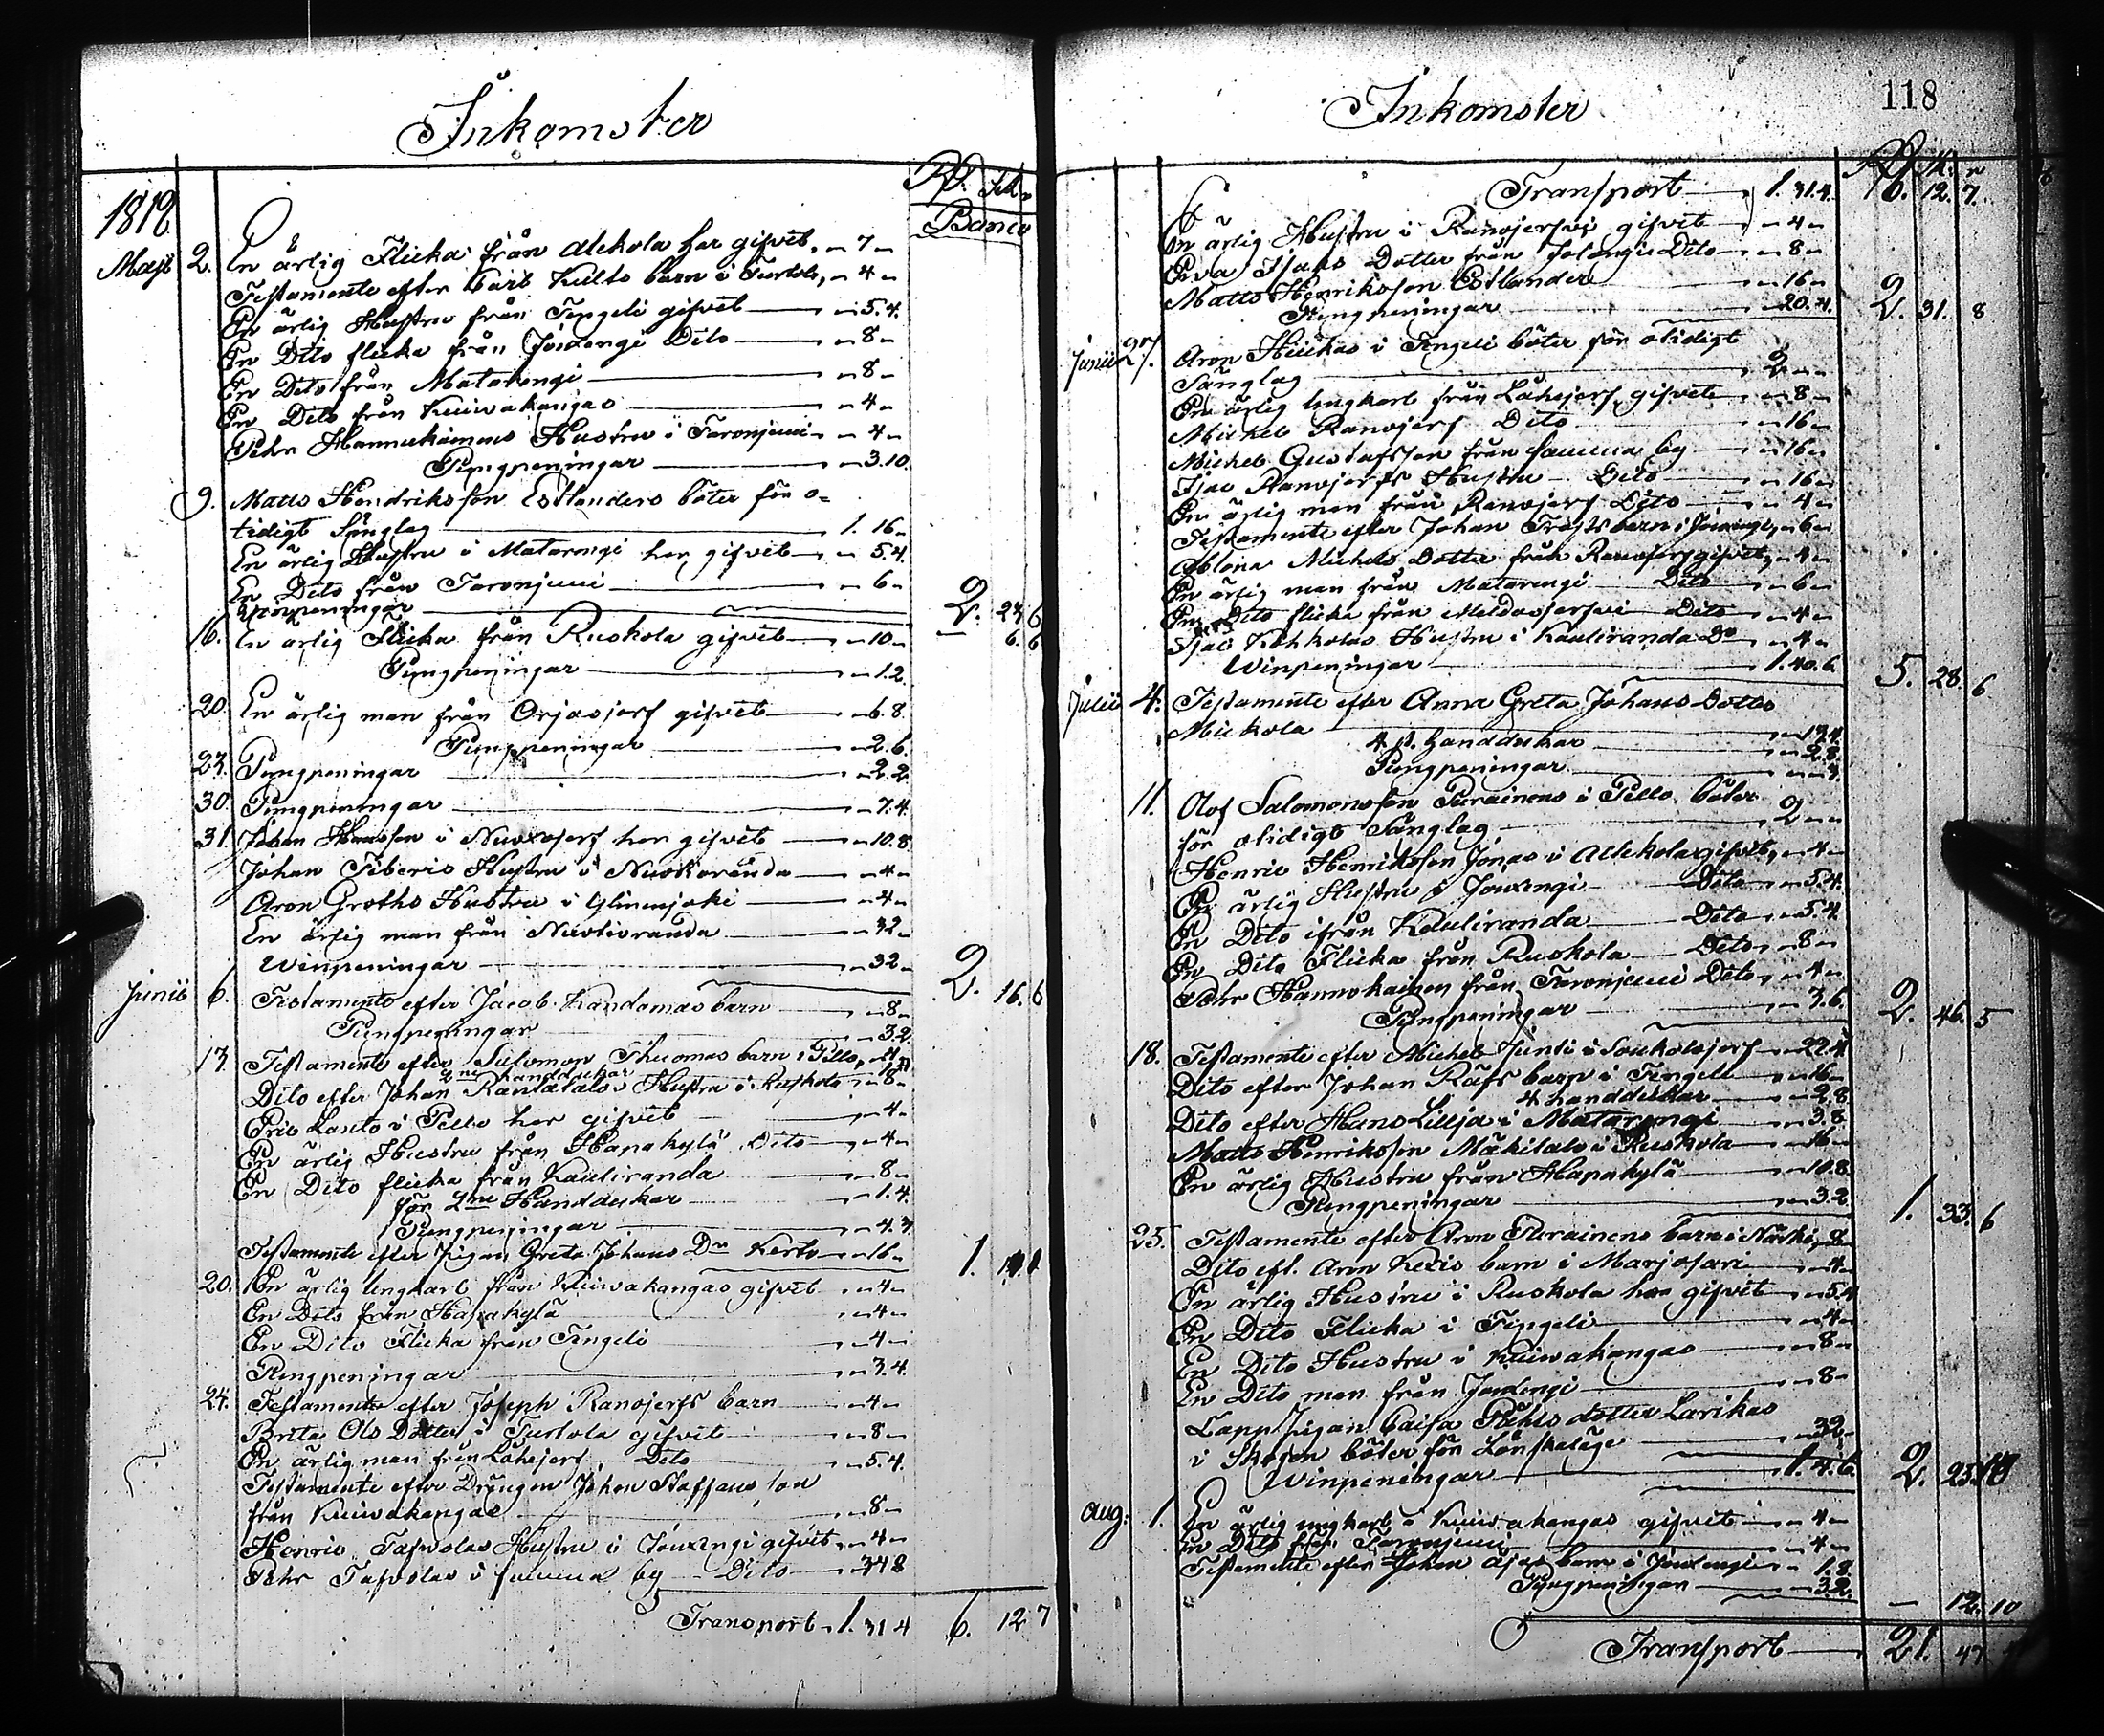 Inkomster
Rd. Sk.
Banco
1812
Maji 2. En ärlig Flicka från Alckola har gifvit, - 7 -
Testamente efter Carl Kults barn i Turtola, - 4 -
En ärlig Hustru från Tengeli gifvit - 5.4.
En Dito flicka från Jouxengi Dito - 8 -
En Dito från Matarengi - 8 -
En Dito från Kuivakangas - 4 -
Pehr Hannukainens Hustru i Taronjuni - 4 -
Pungpeningar - 3.10.
9. Matts Hendriksson Estlanders böter för o=
tidigt Sänglag 1. 16 -
En ärlig Hustru i Matarengi har gifvit - 5.4.
En Dito från Taronjuni - 6 -
peningar 2. 24. 6
16. En ärlig Flicka från Ruskola gifvit - 10 - — 6. 6
Pungpeningar - 1.2.
20. En ärlig man från Orjasjerf gifvit - 6.8.
Pungpeningar - 2.6.
Pungpeningar - 2.2.
30. Pungpeningar - 7.4.
31. Johan Hansson i Nuoxojerf har gifvit - 10.8
Johan Tiberis Hustru i Niskaranda - 4 -
Aron Groths Hustru i Ylinenjoki - 4 -
En ärlig man från - 32 -
Winpeningar - 32 - 2. 16. 6
Junii 6. Testamente efter Jacob Kandomas barn - 8 -
Pungpeningar - 3.2.
13. Testamente efter Salomon Thuomas barn i Pello,
2ne handdukar
Dito efter Johan Rantatalos Hustru i Ruskola - 8 -
Eric Lanto i Pello har gifvit - 4 -
En ärlig Hustru från Hapakylä Dito - 4 -
En Dito flicka från Kauliranda - 8 -
för 2ne Handdukar - 1.4.
Pungpeningar - 4.
Testamente efter Pigan Greta Johans Dr Kerto - 16 - 1.
20. En ärlig Ungkarl från Kuivakangas gifvit - 4 -
En Dito från Hapakylä - 4 -
En Dito Flicka från Tengeli - 4 -
Pungpeningar - 3.4.
24. Testamente efter Joseph Ranojerfs barn - 4 -
Brita Ols Dotter i Turtola gifvit - 8 -
En ärlig man från Lohijerf, Dito - 5.4.
Testamente efter Drängen Johan Staffans son
från Kuivakangas - 8 -
Henric Tapvolas Hustru i Jouxengi gifvit - 4 -
Pehr Tapvolas i by - Dito - 34 8
Transport - 1. 31 4 6. 12 7

Inkomster 118
Transport 1. 31.4. 6. 12. 7.
En ärlig Hustru i Ranojerfvi gifvit - 4 -
Eva Isaks Dotter från Dito - 8 -
Matts Henriksson Estlander - 16 -
Pungpeningar - 20.4. 2. 31. 8
Junii 27. Aron Hiukas i Tengeli böter för otidigt
Sänglag 2 - -
En ärlig Ungkarl från Lohijerf gifvit - 8 -
Michel Ranojerf Dito - 16 -
Michel Gustafsson från by - 16 -
Isac Ranojerfs Hustru - Dito - 16 -
En ärlig man från Ranojerf Dito - 4 -
Testamente efter Johan barn i Jouxengi, - 6 -
Michels Dotter från Ranojerf gifvit, - 4 -
En ärlig man från Matarengi - Dito - 6 -
En Dito flicka från Meldosjerfvi Dito - 4 -
Isac Kohkolas Hustru i Kauliranda Do - 4 -
Winpeningar 1. 40. 6. 5. 28. 6
Julii 4. Testamente efter Anna Greta Johans Dotter
Mickola -
4 st. handdukar - 2.8.
Pungpeningar
11. Olof Salomonsson Purainens i Pello böter
för otidigt Sänglag 2 - -
Henric Henriksson Jonas i Alckola gifvit, - 4 -
En ärlig Hustru i Jouxengi - Dito - 5.4.
En Dito ifrån Kauliranda - Dito - 5.4.
En Dito Flicka från Ruskola - Dito - 8 -
Pehr Hannokainen från Taronjuni Dito, - 4 -
Pungpeningar - 3.6. 2. 46. 5
18. Testamente efter Michel Junti i Soukolojerf - 22.4
Dito efter Johan Räfs barn i Tengeli - 16 -
4 handdukar - 2.8
Dito efter Hans Lillja i Matarengi - 3.8.
Matts Henriksson Mäkitalo i Ruskola - 16 -
En ärlig Hustru från Hapakylä - 10.8.
Pungpeningar - 3.2. 1. 33. 6
25. Testamente efter Aron Purainens barn i Närki, - 8 -
Dito eft. Aron Kexis barn i Marjosari - 4 -
En ärlig Hustru i Ruskola har gifvit - 5.4
En Dito Flicka i Tengeli - 4 -
En Dito Hustru i Kuivakangas - 8 -
En Dito man från Jouxengi - 8 -
Lapp Pigan Caisa Pehrs dotter Larikas
i böter för Lönskaläge - 32 -
Winpeningar 1. 4. 6. 2.
Aug: 1. En ärlig ungkarl i Kuivakangas gifvit - 4 -
En Dito från Taronjuni - 4 -
Testamente efter Johan barn i Jouxengi - 1.8
Pungpeningar - 3.2. — 12. 10
Transport 21. 47